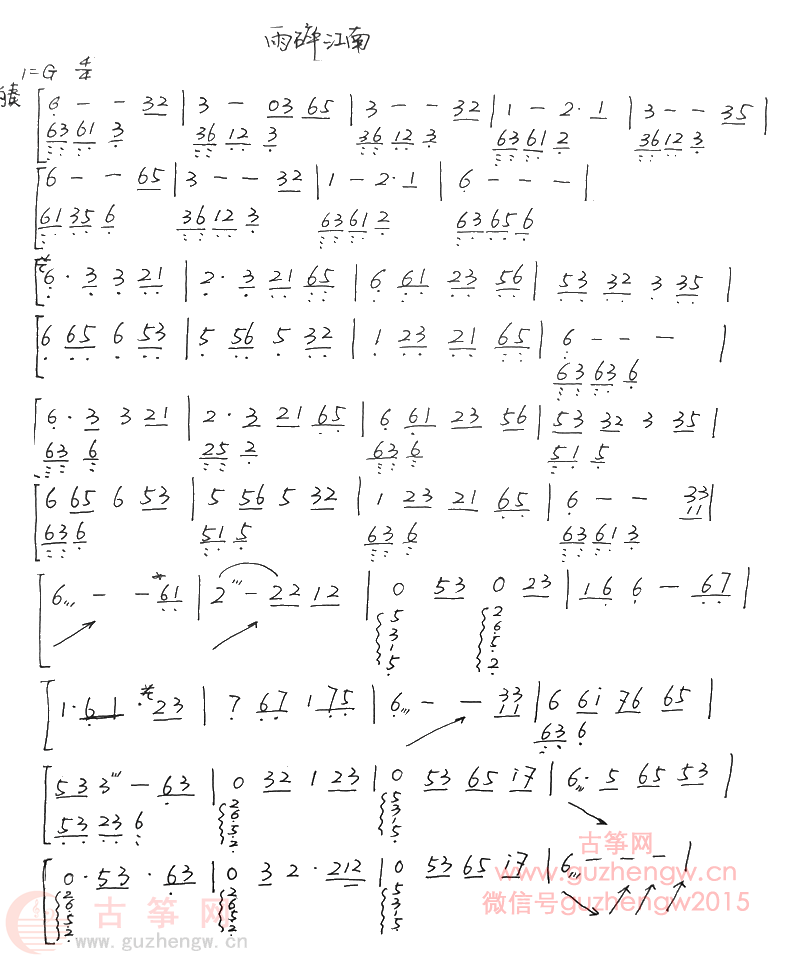 雨碎江南
1=G 4/4
前奏
6 - - 32 | 3 - 03 65 | 3 - - 32 | 1 - 2· 1 | 3 - - 35 |
63 61 3 36 12 3 36 12 3 63 61 2 36 12 3
6 - - 65 | 3 - - 32 | 1 - 2· 1 | 6 - - - |
61 35 6 36 12 3 63 61 2 63 65 6
6· 3 3 21 | 2· 3 21 65 | 6 61 23 56 | 53 32 3 35 |
6 65 6 53 | 5 56 5 32 | 1 23 21 65 | 6 - - - |
63 63 6
6· 3 3 21 | 2· 3 21 65 | 6 61 23 56 | 53 32 3 35 |
63 6 25 2 63 6 51 5
6 65 6 53 | 5 56 5 32 | 1 23 21 65 | 6 - - 33 |
11
63 6 51 5 63 6 63 61 3
6 - - 61 | 2 - 22 12 | 0 53 0 23 | 16 6 - 67 |
5 2
3 6
1 5
5 2
1· 61 · 23 | 7 67 1 75 | 6 - - 33 | 6 6i 76 65 |
11
63 6
53 3 - 63 | 0 32 1 23 | 0 53 65 i7 | 6· 5 65 53 |
53 23 6
2 5
6 3
5 1
2 5
古筝网
www.guzhengw.cn
微信号guzhengw2015
0· 53 · 63 | 0 3 2· 212 | 0 53 65 i7 | 6 - - - |
2 2 5
6 6 3
5 5 1
2 2 5
古筝网
www.guzhengw.cn